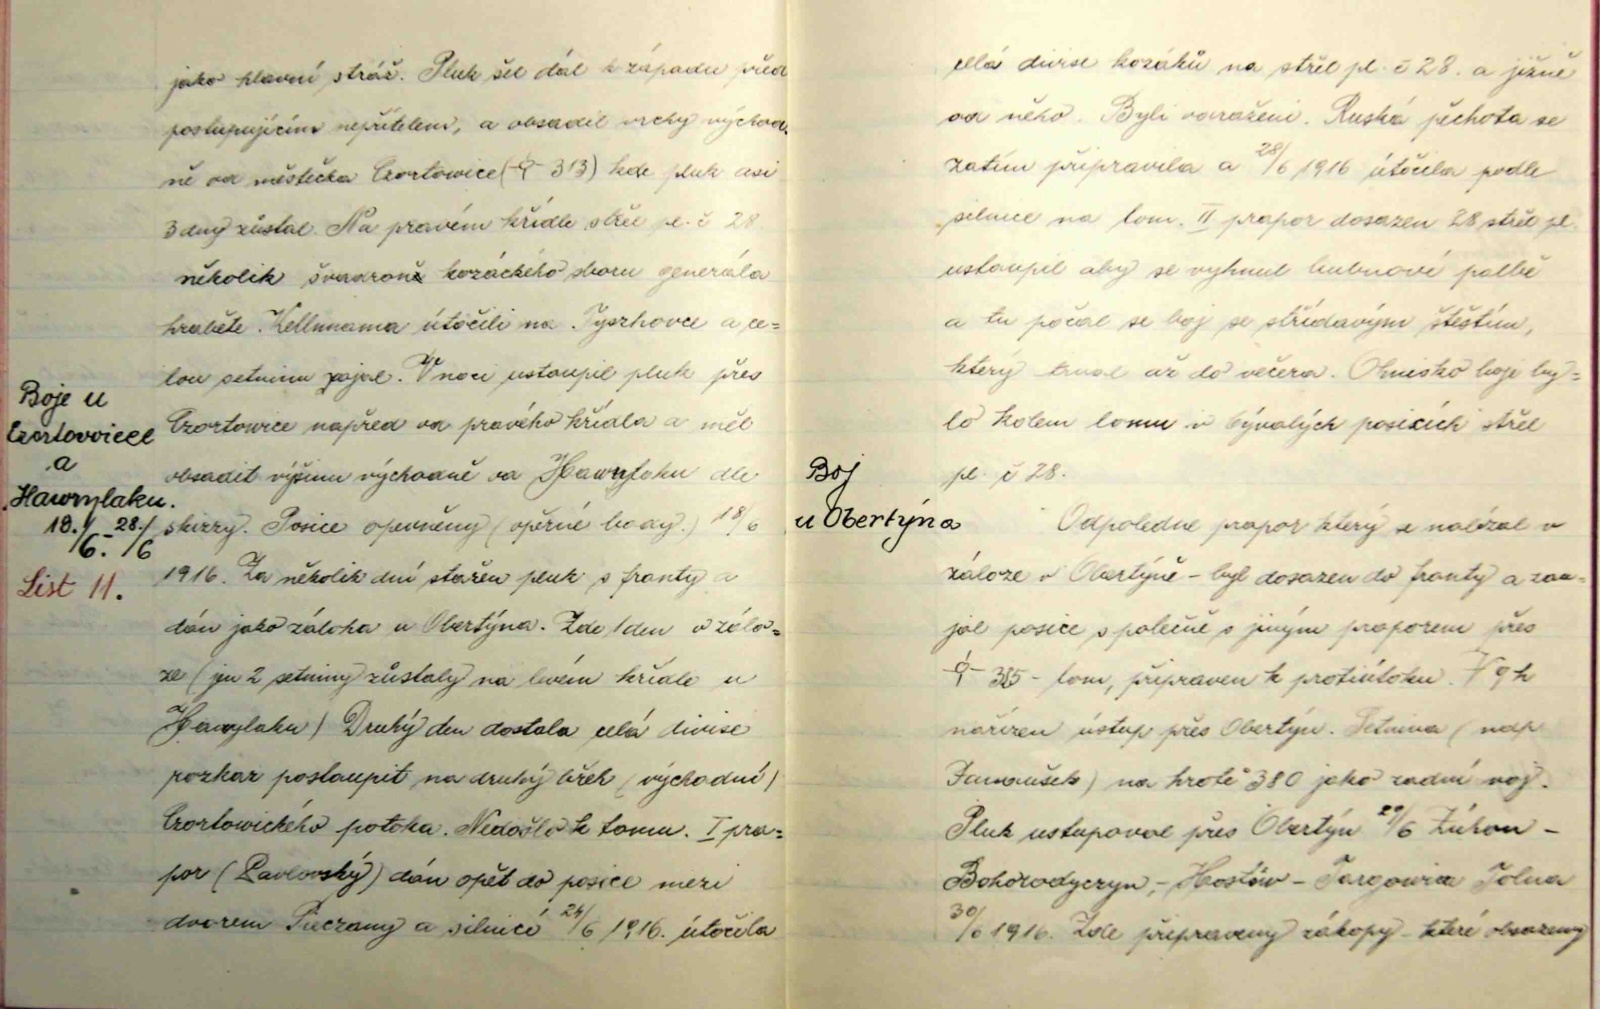 jako hlavní stráž. Pluk šel dál k západu před
postupujícím nepřítelem, a obsadil vrchy východ
ně od městečka Czortowice ( 313) kde pluk asi
3 dny zůstal. Na pravém křídle střel pl. č 28.
několik švadron kozáckého sboru generála
hraběte Kellnnama útočili na Tyszhovce a ce=
lou setninu zajal. V noci ustoupil pluk přes
Czortowice napřed od pravého křídla a měl
obsadit výšinu východně od Hawryloku dle
skizzy. Posice opevněny (opěrné body.) 18/6
1916. Za několik dní stažen pluk s fronty a
dán jako záloha u Obertýna. Zde 1 den v zálo=
ze (jen 2 setniny zůstaly na levém křídle u
Hawrylaku) Druhý den dostala celá divise
rozkaz postoupit na druhý břeh (východní)
Czortowického potoka. Nedošlo k tomu. I pra=
por (Pavlovský) dán opět do posice mezi
dvorem Pieczany a silnicí 24/6 1916. útočila
Boje u
Czortovvicel
a
Hawrylaku.
18./6. - 28./6
List 11.
celá divise kozáků na střel pl. č 28. a jižně
od něho. Byli odraženi. Ruská pěchota se
zatím připravila a 28/6 1916 útočila podle
silnice na lom. II prapor dosazen 28 střel pl.
ustoupil aby se vyhnul bubnové palbě
a tu počal se boj se střídavým štěstím,
který trval až do večera. Ohnisko boje by=
lo kolem lomu v bývalých posicích střel
pl. č 28.
Odpoledne prapor který se nalézal v
záloze v Obertýně - byl dosazen do fronty a zau=
jal posice společně s jiným praporem přes
385 - lom, připraven k protiútoku. V 9 h
nařízen ústup přes Obertýn. Setnina (ndp
Janoušek) na hrotě 380 jako zadní voj.
Pluk ustupoval přes Obertýn 29/6 Žúkon -
Bohorodyczyn, - Hostów - Targowica Polna
30/6 1916. Zde připraveny zákopy které obsazeny
Boj
u Obertýna